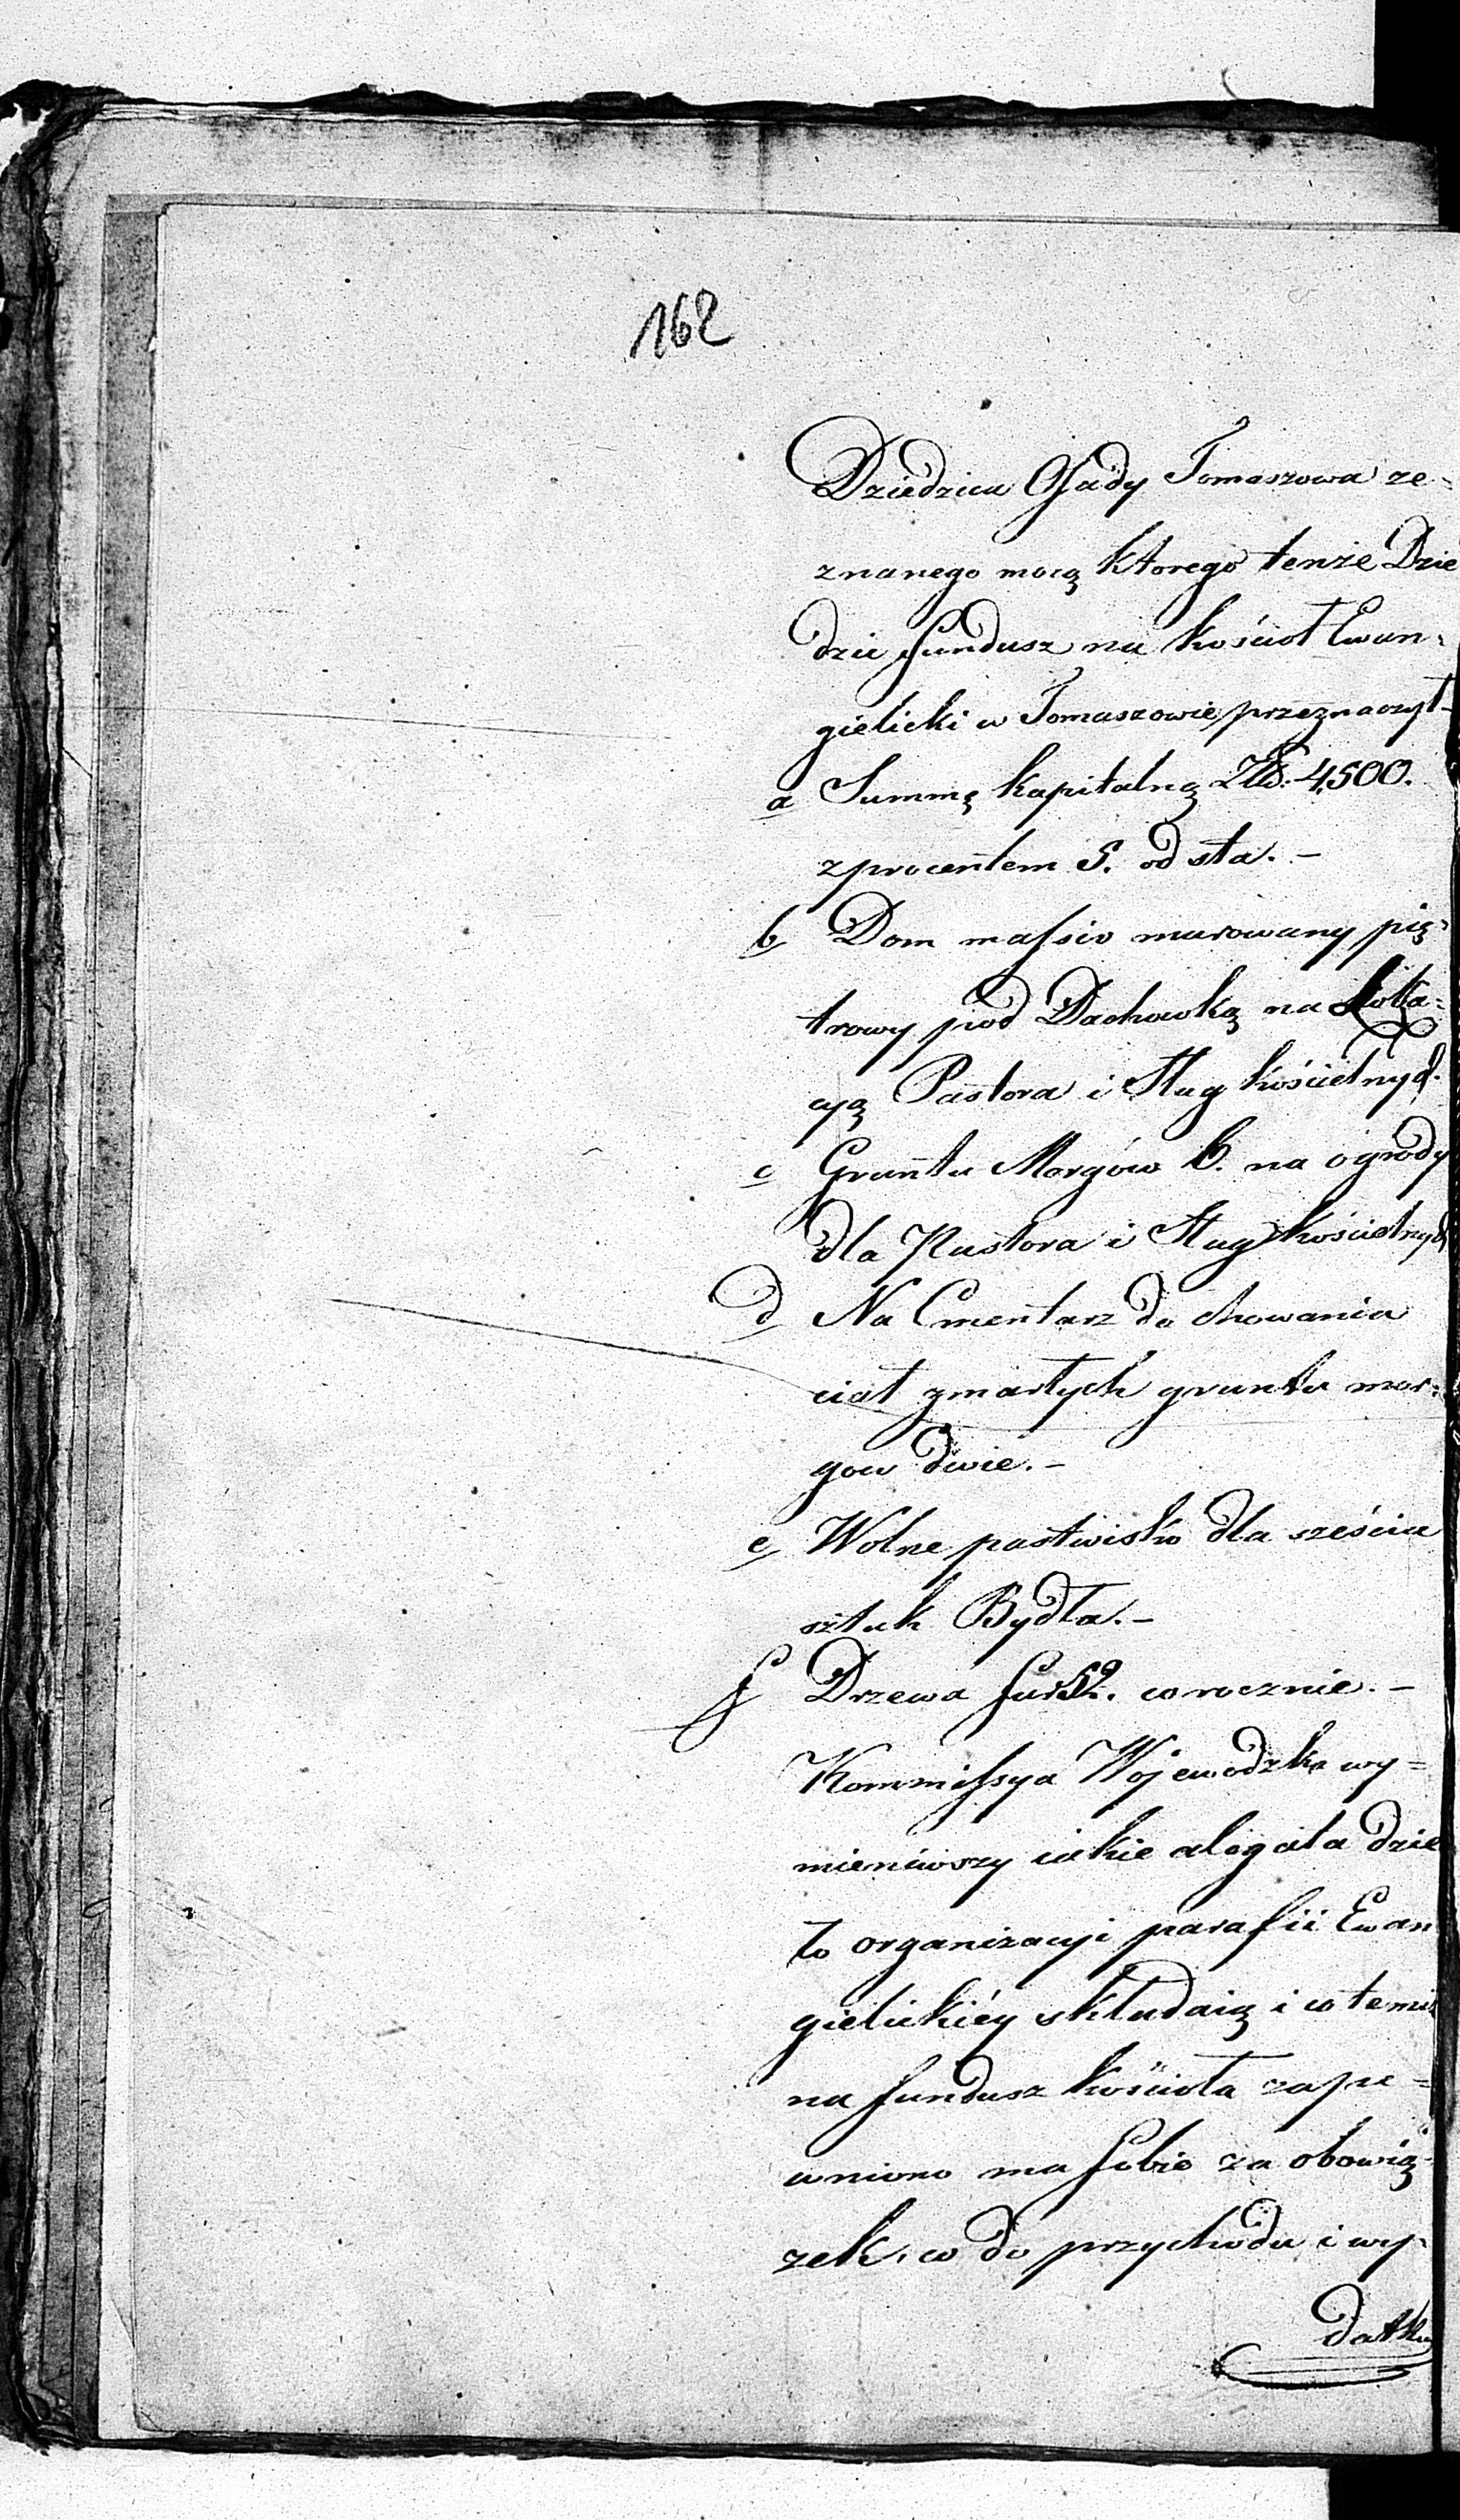 162
Dziedzica Osady Tomaszowa ze=
znanego mocą ktorego tenże Dzie
dzic fundusz na kościoł Ewan=
gielicki w Tomaszowie przeznaczył-
a Summę kapitalną Złp: 4,500.
z procentem 5. od sta. -
b/ Dom massiv murowany pię=
trowy pod Dachowką na Loka=
cyą Pastora i Sług kościelnych.
c Gruntu Morgów 6. na ogrody
dla Pastora i Sług kościelnych
d/ Na Cmentarz do chowania
ciał zmarłych gruntu mor=
gow dwie. -
e/ Wolne pastwisko dla sześciu
sztuk Bydła. -
f Drzewa fur 52. corocznie. -
Kommissya Wojewodzka wy=
mieniwszy iakie alegata dzie
ło organizacyi parafii Ewan
gielickiéy składaią i co temiż
na fundusz kościoła zape=
wniono ma sobie za obowią
zek, co do przychodu i wy=
datku